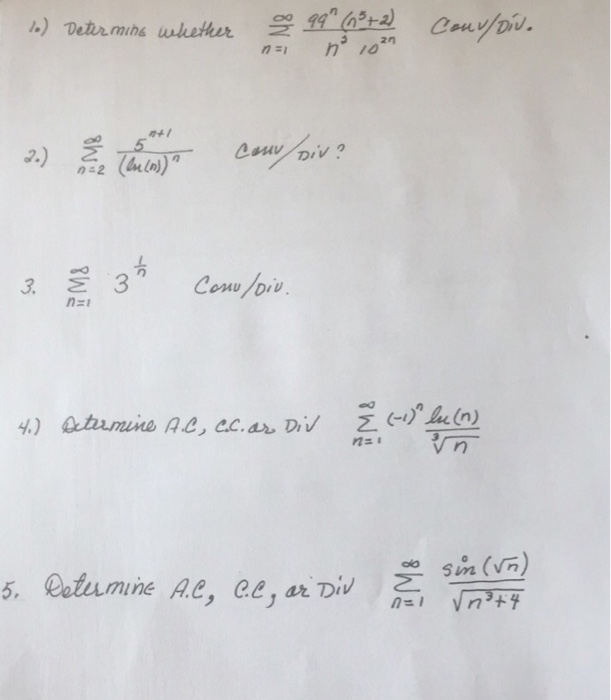 1.) Determine whether ∞ Σ n=1 99ⁿ (n⁵+2) / n² 10²ⁿ Conv/Div.
2.) ∞ Σ n=2 5ⁿ⁺¹ / (ln(n))ⁿ Conv/Div?
3. ∞ Σ n=1 3^(1/n) Conv/Div.
4.) Determine A.C, C.C. or Div ∞ Σ n=1 (-1)ⁿ ln(n) / ∛n
5. Determine A.C, C.C, or Div ∞ Σ n=1 sin(√n) / √n³+4